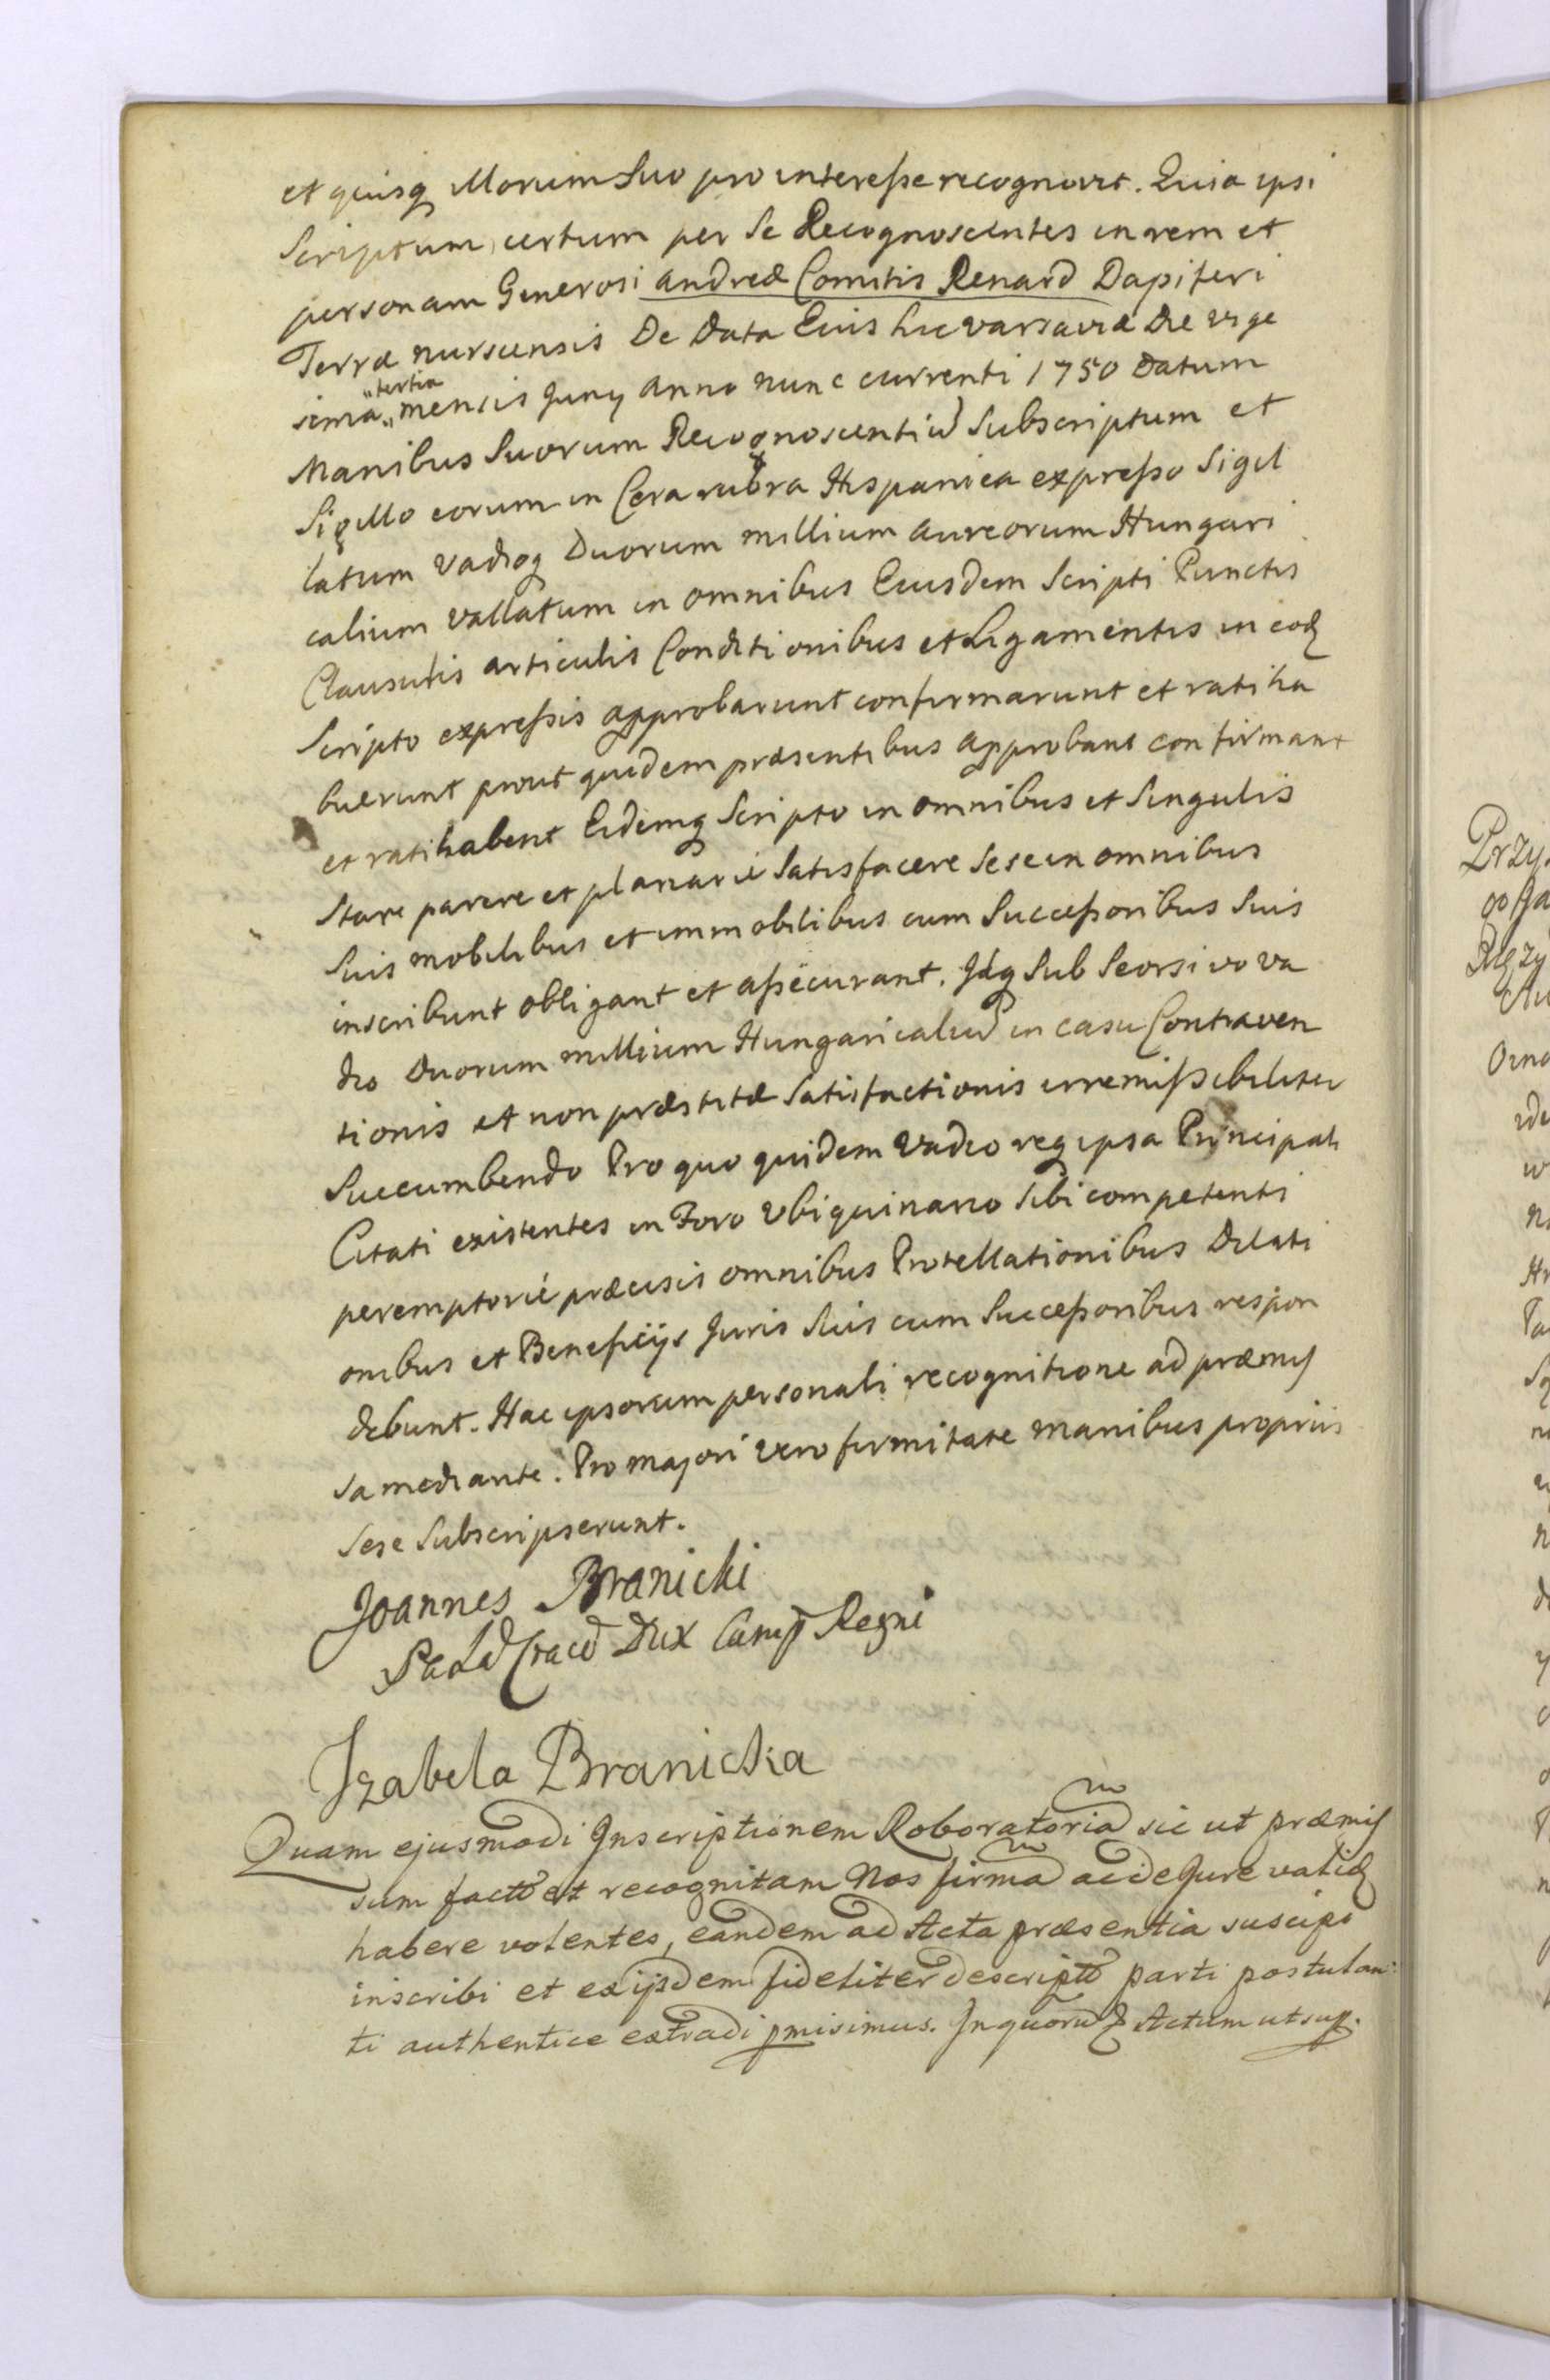 et quisq illorum Suo pro interesse recognovit. Quia ipsi
Scriptum certum per Se Recognoscentes in rem et
personam Generosi Andreæ Comitis Renard Dapiferi
Terræ nurscensis De Data Eius hic varsaviæ Die vige
sima „tertia„ mensis Juny Anno nunc currenti 1750 Datum
Manibus Suorum Recognoscentiũ Subscriptum et
Sigillo eorum in Cera rubra Hispanica expresso Sigil
latum Vadioq Duorum millium Aureorum Hungari
calium Vallatum in omnibus Eiusdem Scripti Punctis
Clausulis articulis Conditionibus et Ligamentis in eod
Scripto expressis approbarunt confirmarunt et ratiha
buerunt prout quidem præsentibus approbant confirmant
et ratihabent Eidemq Scripto in omnibus et Singulis
Stare parere et planarie Satisfacere Sese in omnibus
Suis mobilibus et immobilibus cum Successoribus Suis
inscribunt obligant et assecurant. Idq Sub Seorsivo va
dio Duorum millium Hungaricaliũ in casu Contraven
tionis et non præstitæ Satisfactionis irremissibiliter
Succumbendo Pro quo quidem Vadio req ipsa Principali
Citati existentes in Foro Ubiquinario Sibi competenti
peremptorie præcisis omnibus Protellationibus Dilati
onibus et Beneficijs Juris Suis cum Successoribus respon
debunt. Hac ipsorum personali recognitione ad præmis
sa mediante. Pro majori vero firmitate manibus propriis
Sese Subscripserunt.
Joannes Branicki
Palđ Cracđ Dux Camp Regni
Izabela Branicka
Quam ejusmodi Inscriptionem Roboratoriam sic ut præmis
sum factô est recognitam Nos firmam ac de Jure valid
habere volentes, eandem ad Acta præsentia suscipi
inscribi et ex ijsdem fideliter descriptô parti postulan:
ti authentice extradi pmisimus. In quorũ Actum ut sup.
Przy